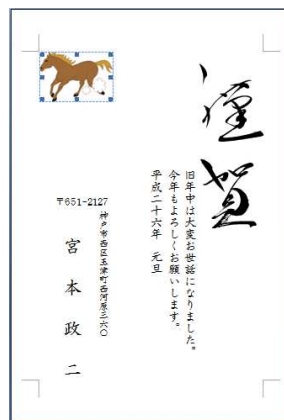 謹賀
旧年中は大変お世話になりました。
今年もよろしくお願いします。
平成二十六年 元旦
〒651-2127
神戸市西区玉津町西河原三六〇
宮本政二